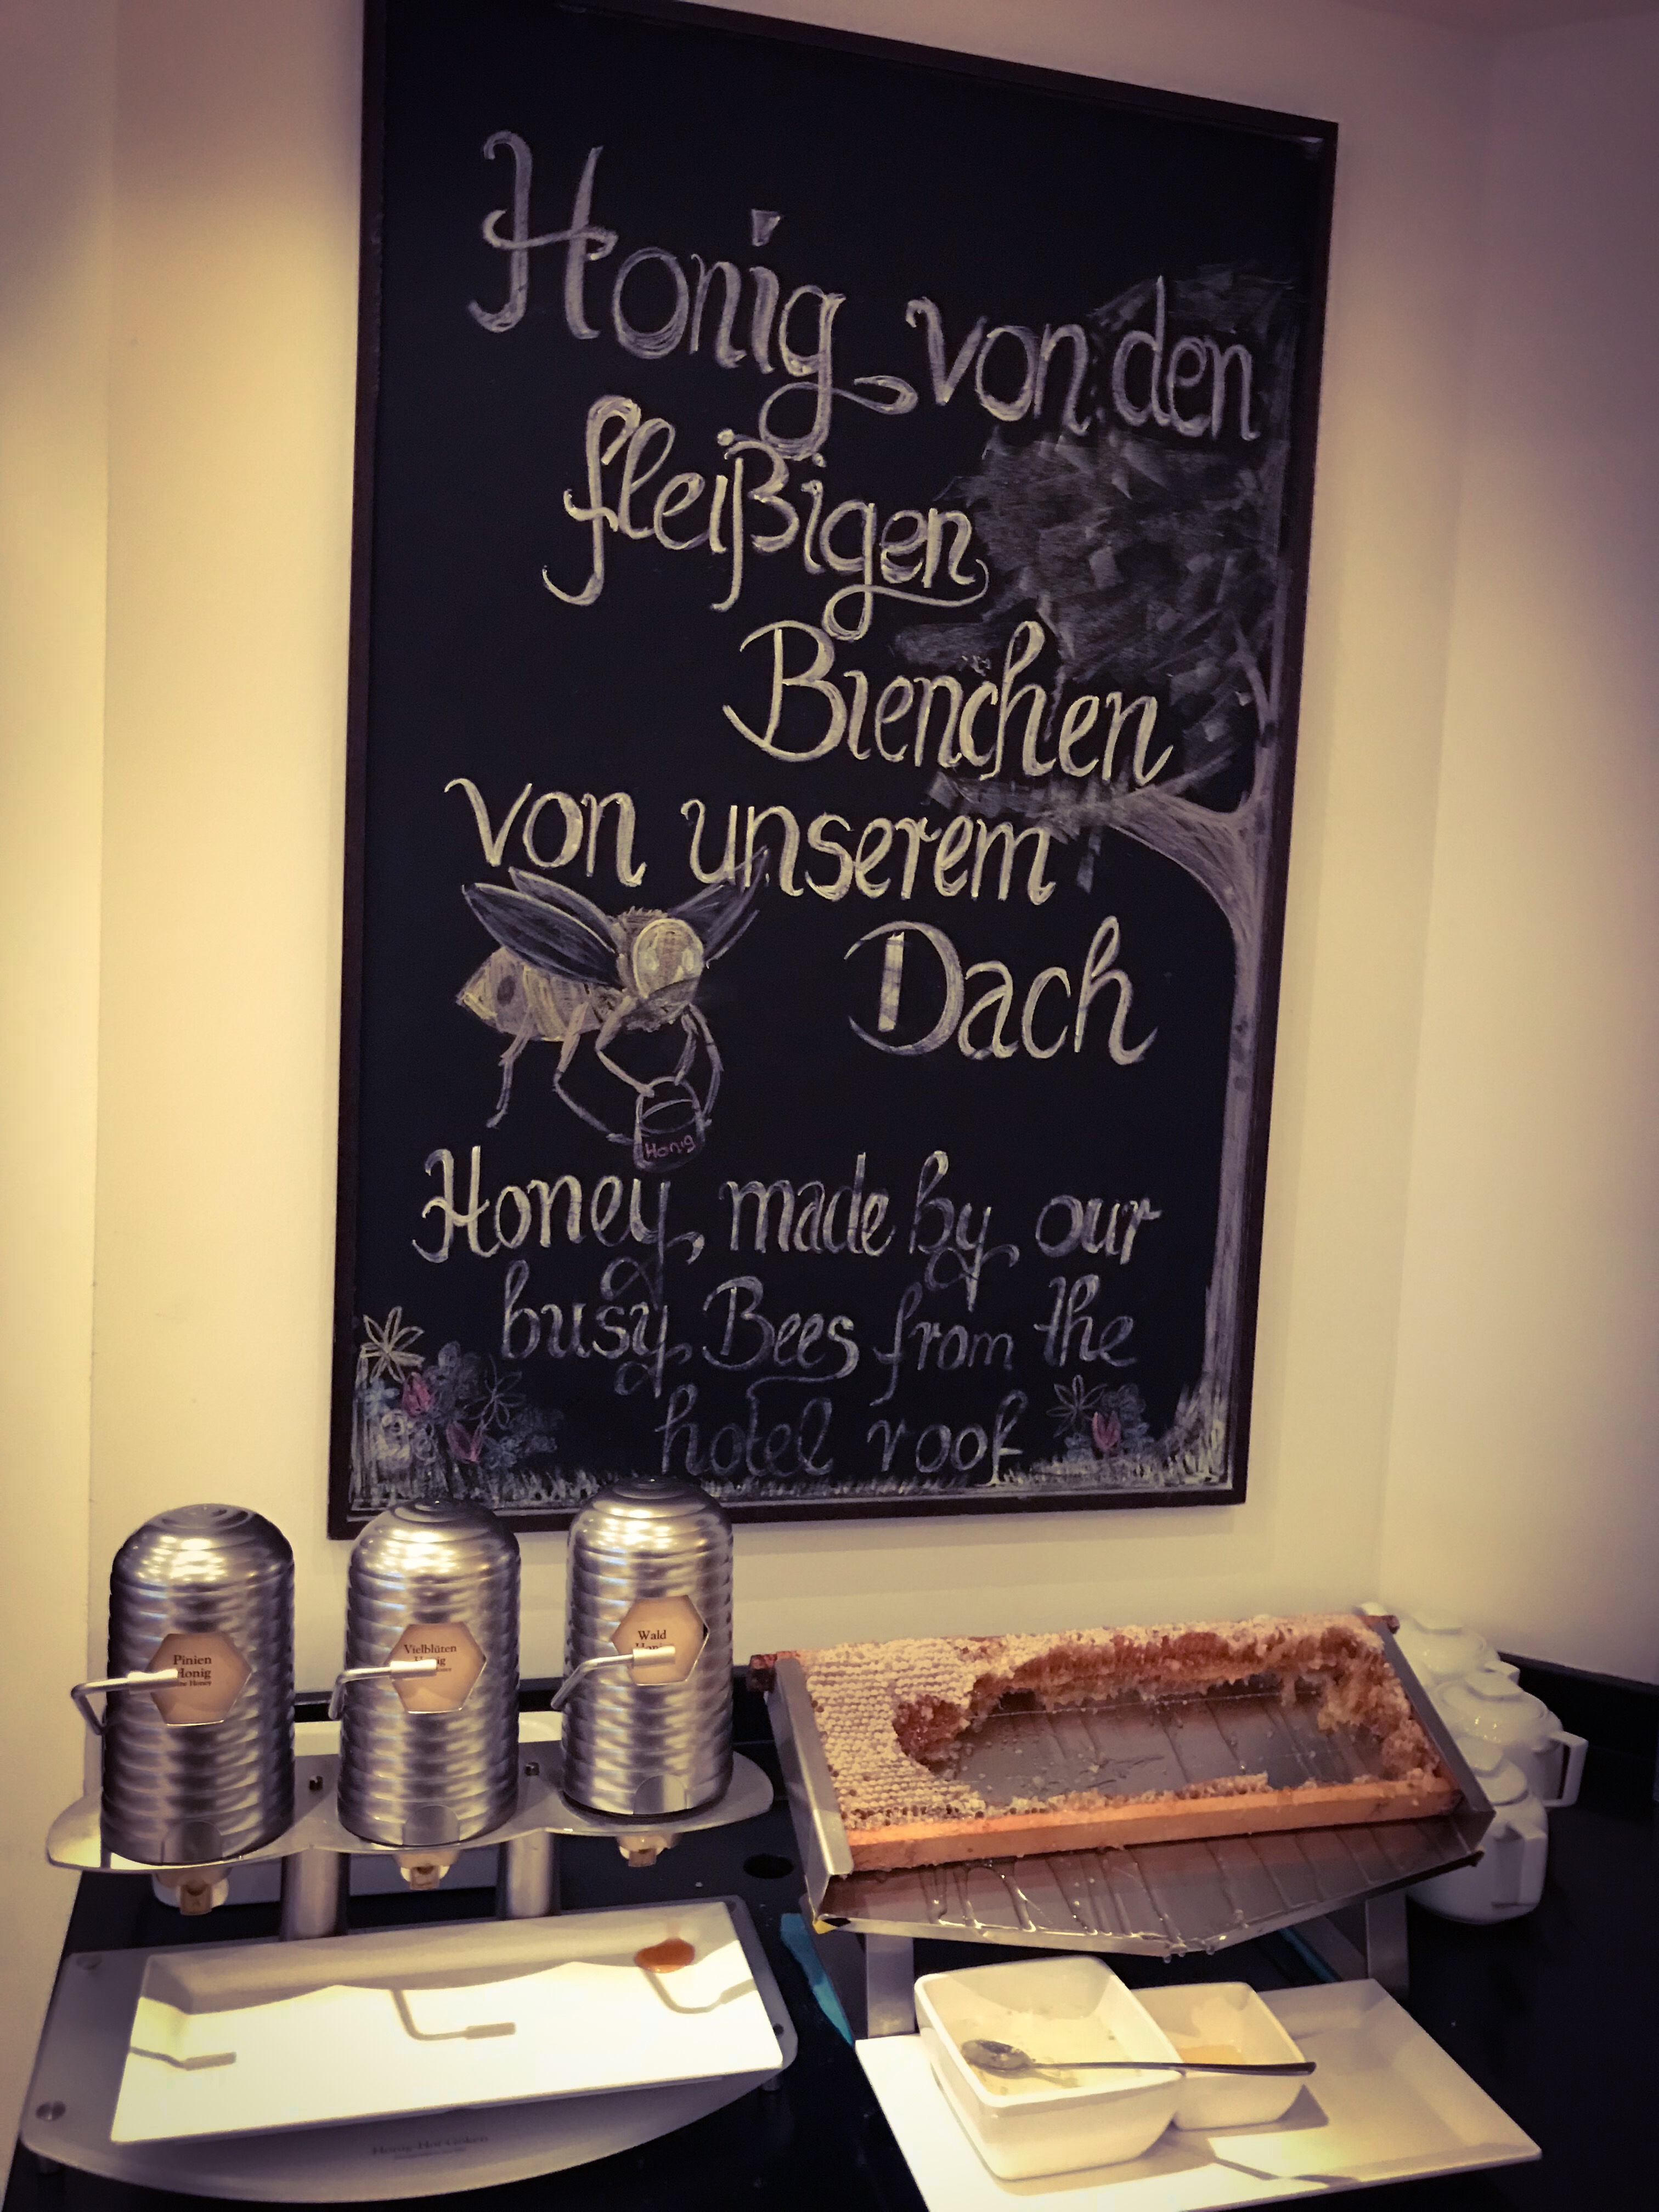 Honig von den
fleißigen
Bienchen
von unserem
Dach
Honig
Honey, made by our
busy Bees from the
hotel roof
Pinien
Honig
Honey
Vielblüten
Honig
Wald
Honig